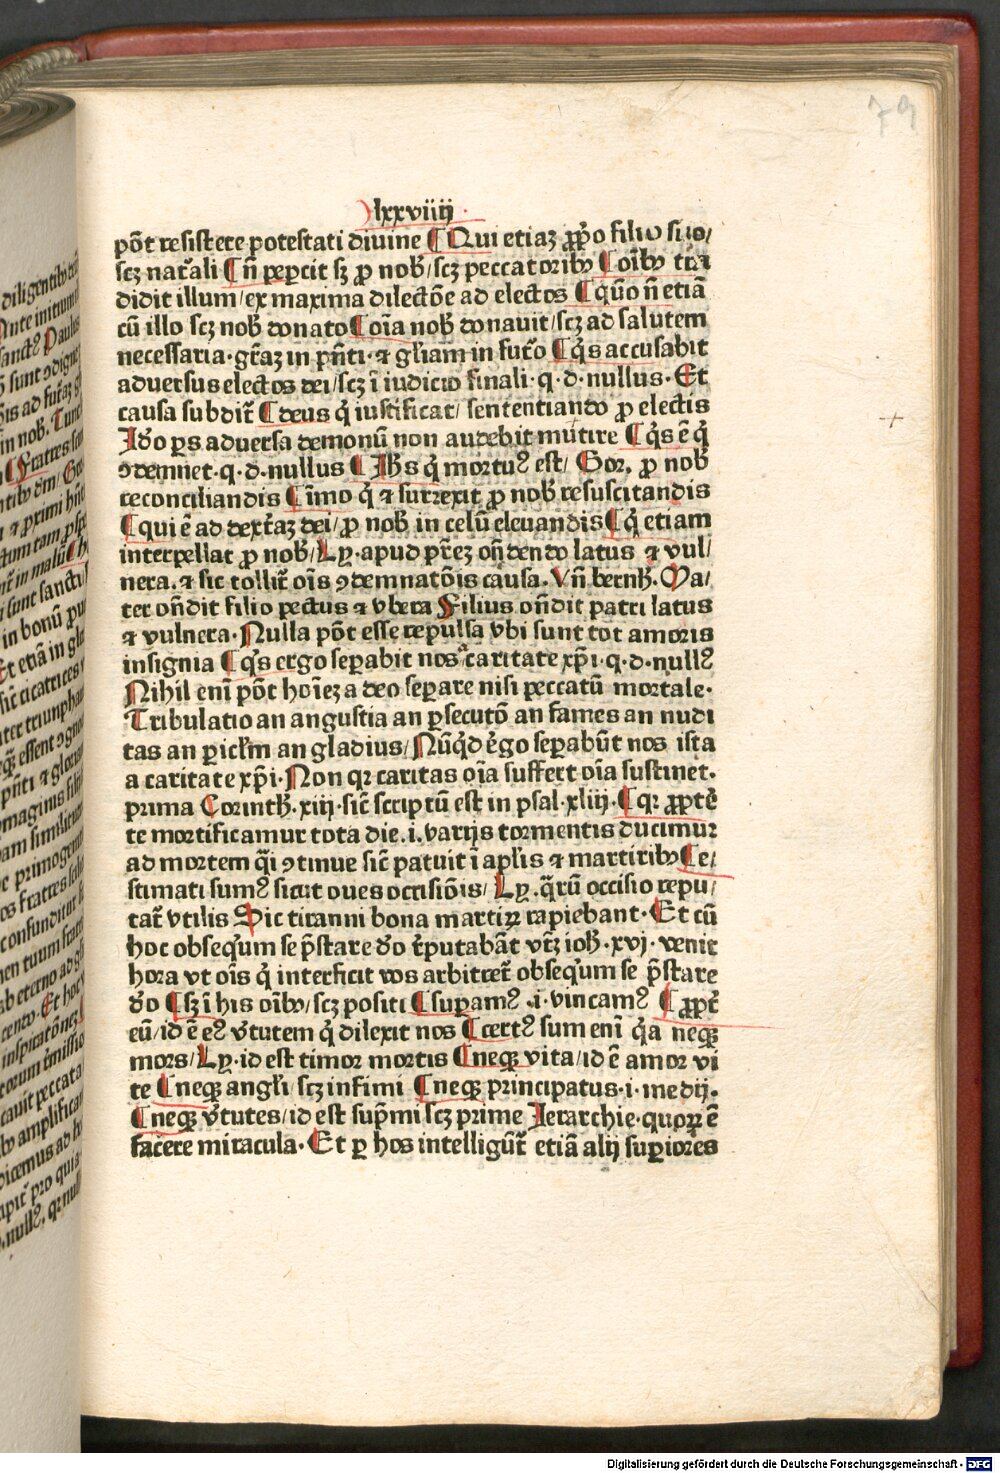 79
lxxviiij
põt resistere potestati diuine ¶ Qui etiaz ꝓpo filio suo/
scz nat᷑ali ¶ nͫ peꝑcit sz ꝓ nob̃/scz peccatoribꝰ ¶ oĩbꝰ tra
didit illum/ex maxima dilectõe ad electos ¶ quõ nͫ etiã
cũ illo scz nob̃ donato ¶ oĩa nob̃ donauit/scz ad salutem
necessaria·gr̃az in pñti·⁊ gl̃iam in fut᷑o ¶ q̃s accusabit
aduersus electos dei/scz ĩ iudicio finali·q·d·nullus·Et
causa subdit᷑ ¶ deus q̇ iustificat/sententiando ꝓ electis
Ido ꝑs aduersa demonũ non audebit mutire ¶ q̃s ẽ q̇
ꝯdemnet·q·d·nullus ¶ Ihs q̇ mortuꝰ est/Gor. ꝓ nob̃
reconciliandis ¶ ĩmo q̇ ⁊ surrexit ꝓ nob̃ resuscitandis
¶ qui ẽ ad dext᷑az dei/ꝓ nob̃ in celũ eleuandis ¶ q̇ etiam
interpellat ꝓ nob̃/Ly·apud pr̃ez oñdendo latus ⁊ vul/
nera.⁊ sic tollit᷑ oĩs ꝯdemnatõis causa·Vñ bernh̃·Ma/
ter oñdit filio pectus ⁊ vbera Filius oñdit patri latus
⁊ vulnera·Nulla põt esse repulsa vbi sunt tot amoris
insignia ¶ q̃s ergo seꝑabit nos a caritate xp̃i·q·d·nullꝰ
Nihil enĩ põt hoĩez a deo seꝑare nisi peccatũ mortale·
Tribulatio an angustia an ꝑsecutõ an fames an nudi
tas an ꝑicl̃m an gladius/Nũq̇d ẽgo seꝑabũt nos ista
a caritate xp̃i·Non qꝛ caritas oĩa suffert oĩa sustinet·
prima Corinth̃·xiij·sic̃ scriptũ est in psal·xliij·¶ qꝛ ꝓptẽ
te mortificamur tota die.i.varijs tormentis ducimur
ad mortem q̃i ꝯtinue sic̃ patuit ĩ apl̃is ⁊ martiribꝰ ¶ e/
stimati sumꝰ sicut oues occisiõis/Ly·q̃rũ occisio repu/
tat᷑ vtilis Sic tiranni bona martiꝝ rapiebant·Et cũ
hoc obseq̇um se p̃stare do t᷑putabãt vtz ioh̃·xvj·venit
hora vt oĩs q̇ interficit vos arbitret᷑ obseq̇um se p̃stare
do ¶ sz ĩ his oĩbꝰ/scz positi ¶ suꝑamꝰ·i·vincamꝰ ¶ ꝓpt᷑
eũ/id ẽ eꝰ v᷑tutem q̇ dilexit nos ¶ certꝰ sum enĩ q̇a neqꝫ
mors/Ly·id est timor mortis ¶ neqꝫ vita/id ẽ amor vi
te ¶ neqꝫ angl̃i scz infimi ¶ neqꝫ principatus·i·medij.
¶ neqꝫ v᷑tutes/id est sup̃mi scz prime Ierarchie·quoꝝ ẽ
facere miracula·Et ꝑ hos intelligũt᷑ etiã alij suꝑiores
Digitalisierung gefördert durch die Deutsche Forschungsgemeinschaft - DFG